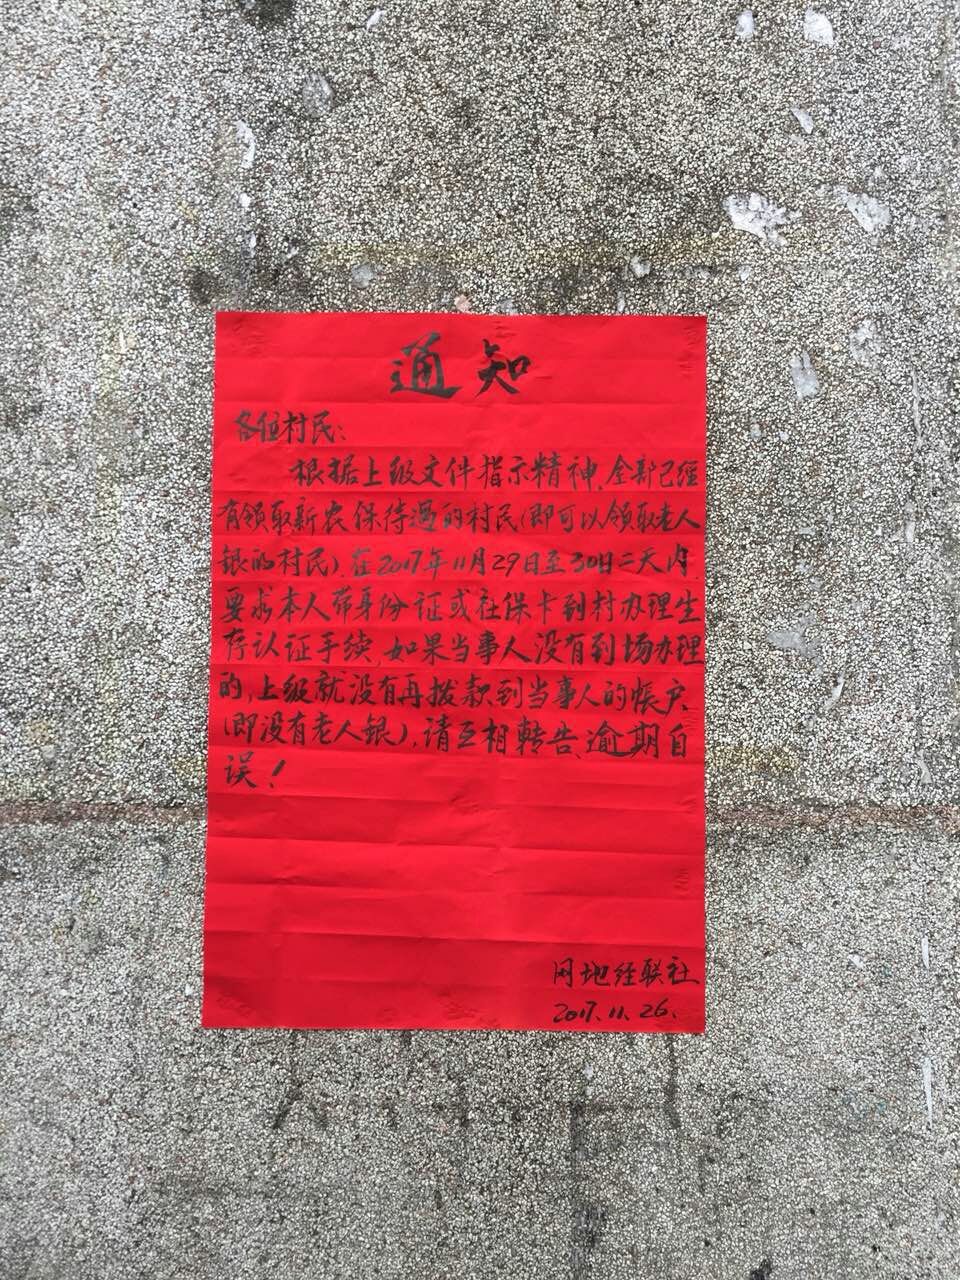 通知
各位村民：
根据上级文件指示精神、全部已经
有领取新农保待遇的村民（即可以领取老人
银的村民）、在2017年11月29日至30日二天内、
要求本人带身份证或社保卡到村办理生
存认证手续，如果当事人没有到场办理
的，上级就没有再拨款到当事人的帐户
（即没有老人银），请互相转告、逾期自
误！
冈地经联社
2017.11.26.